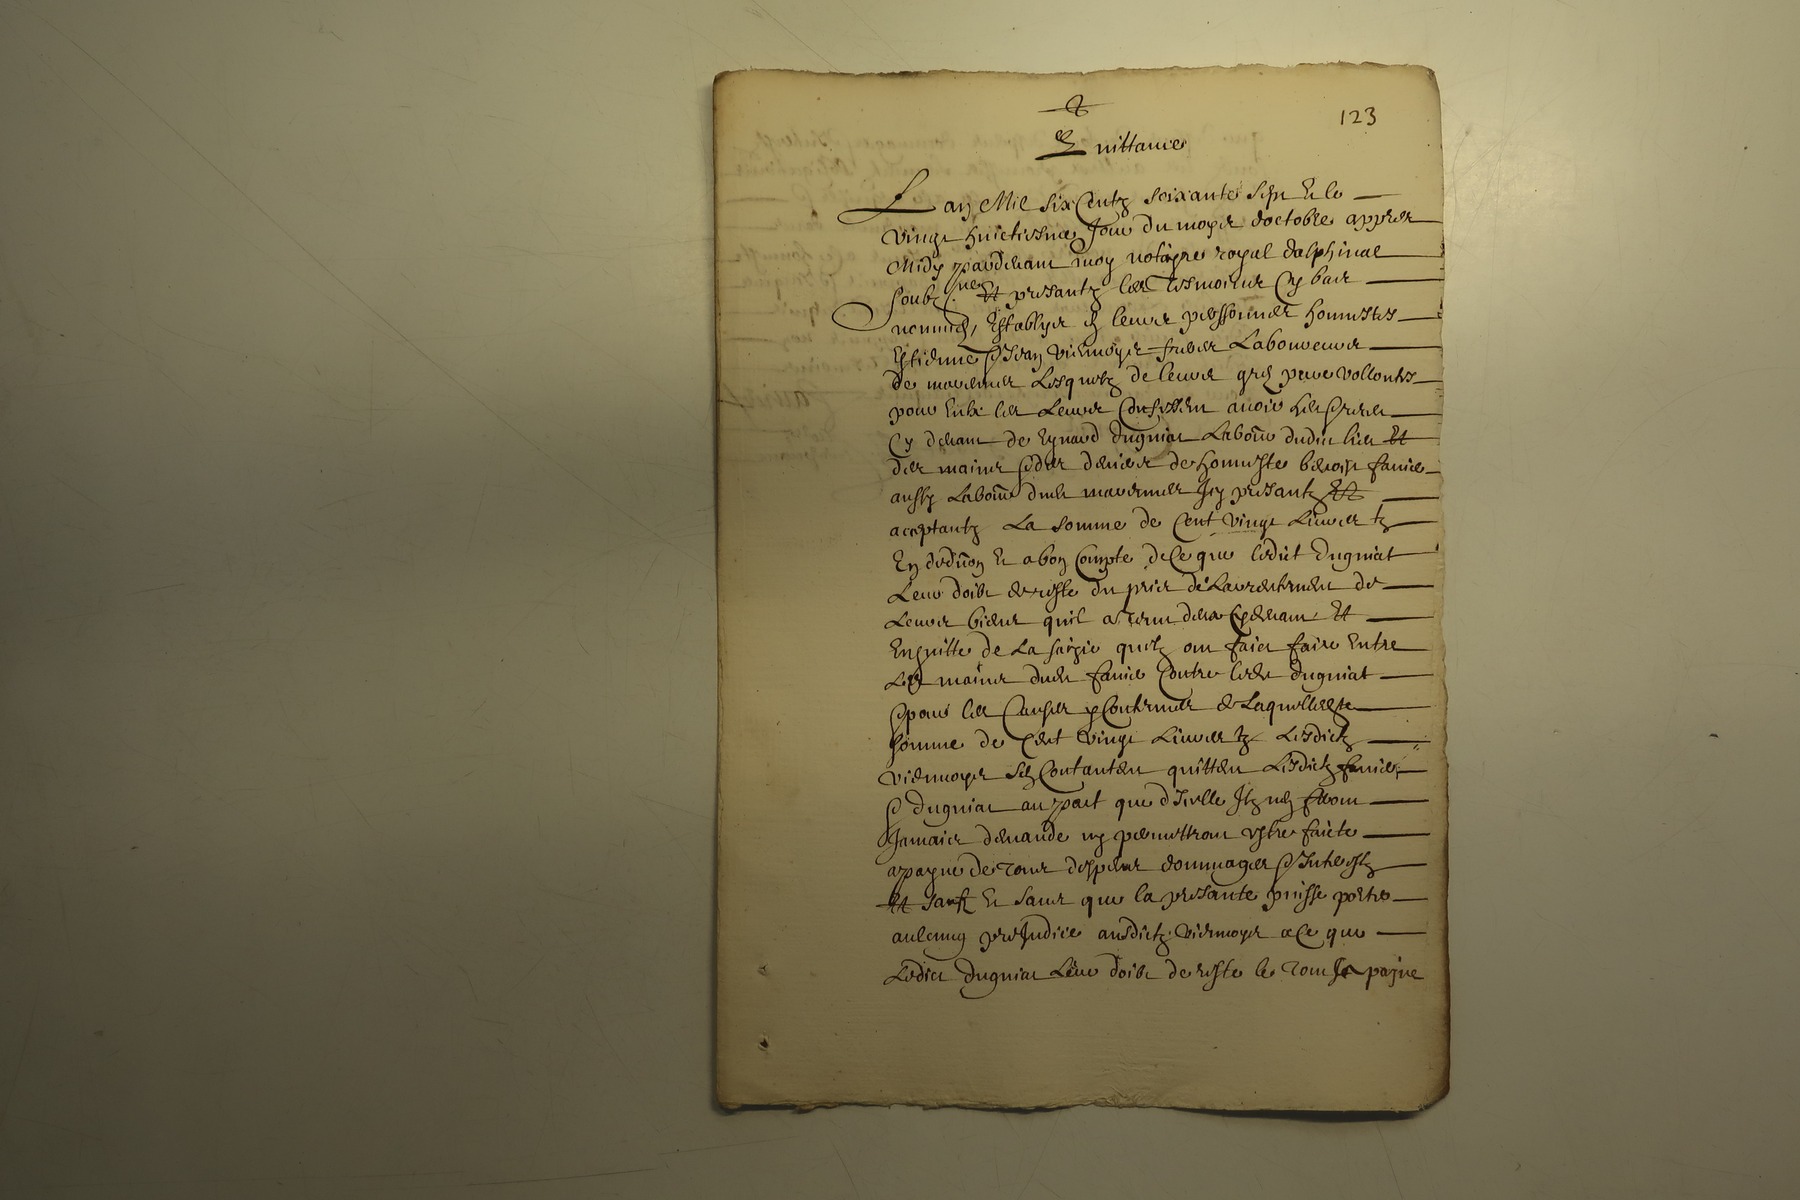 123
Quittance
L'an Mil six Centz soixante sept & le
vingt huictiesme Jour du moys doctobre appres
Midy pardevant moy notayre royal dalphinal
soubzne Et presantz les tesmoins Cy bas
nommés, Establys en leurs personnes honnestes
Estienne & Jean Viennoys freres Laboureurs
de Lesquelz de leurs grés pure vollontes
pour Eulx les Leurs Confessent avoir heu
Cy devant de Eynard dugniat Labour dudit lieu Et
des mains & des deniers de honneste benoist favier
aussy Labour dudt Icy presantz Et
aceptantz La somme de Cent vingt Livres tz
En deduon & a bon Compte de Ce que ledict dugniat
Leur doibt de reste du prix de Larrentement de
Leurs biens quil a tenu deux Cydevant Et
Ensuitte de La saizie quilz ont faict faire Entre
Les mains dudt favier Contre ledt dugniat
& pour les Causes y Contenues de Laquelle
somme de Cent vingt Livres tz Lesdictz
Viennoys se Contantent quittent Lesdictz favier
& dugniat au pact que dicelle Ilz nen feront
Jamais demande ny permettront estre faicte
a payne de tous despens dommages & Interestz
Et sauf & sans que la presante puisse porter
aulcung preJudice ausdictz Viennoys a Ce que
Ledict dugniat Leur doibt de reste le tout payne